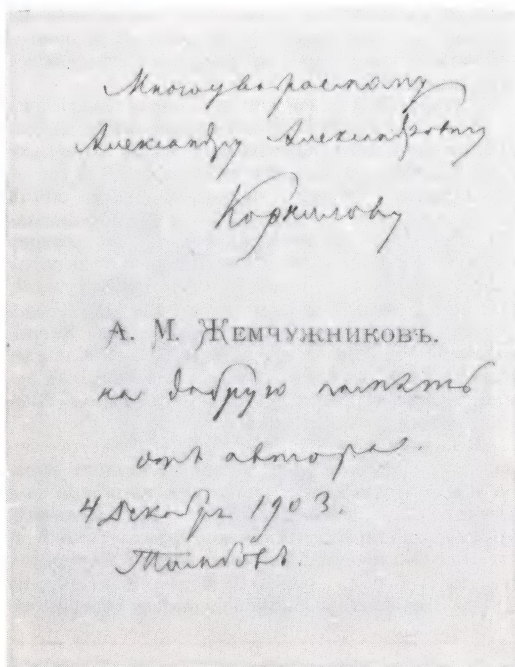 Многоуважаемому
Александру Александровичу
Корнилову
А. М. ЖЕМЧУЖНИКОВЪ.
на добрую память
отъ автора.
4 Декабр. 1903.
Тамбовъ.